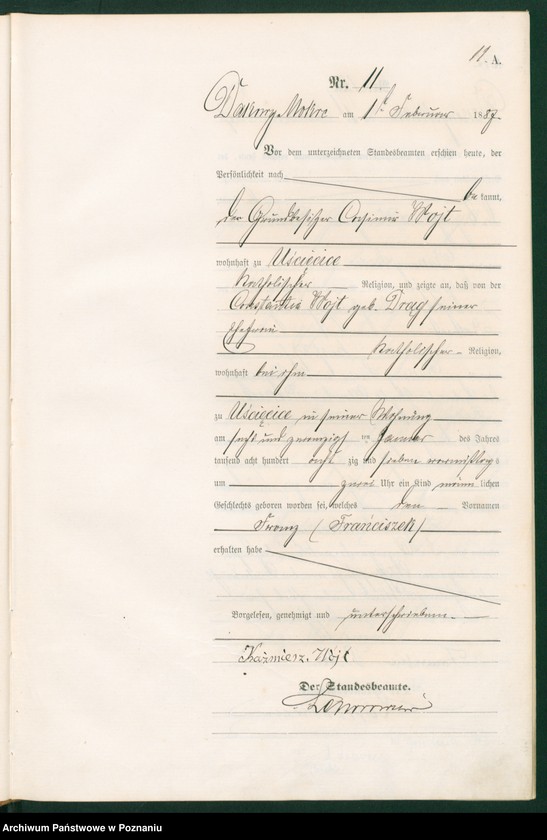 11. A.
Nr. 11
Dakowy Mokre am 1ten Februar 1887.
Vor dem unterzeichneten Standesbeamten erschien heute, der
Persönlichkeit nach
bekannt,
der Grundbesitzer Casimir Wojt
wohnhaft zu Uścięcice
katholischer Religion, und zeigte an, daß von der
Constantia Wojt geb. Drag seiner
Ehefrau
katholischer Religion,
wohnhaft bei ihm
zu Uścięcice in seiner Wohnung
am sechs und zwanzigsten Januar des Jahres
tausend acht hundert achtzig und sieben vormittags
um zwei Uhr ein Kind männlichen
Geschlechts geboren worden sei, welches den Vornamen
Franz (Franciszek)
erhalten habe
Vorgelesen, genehmigt und unterschrieben.
Kaźmierz Wojt
Der Standesbeamte.
Archiwum Państwowe w Poznaniu